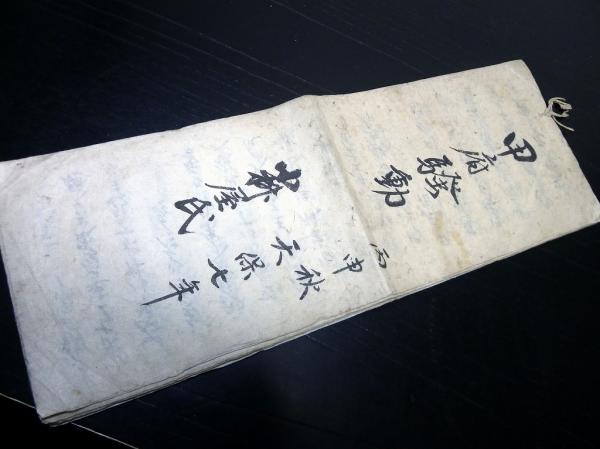 甲府騒動
丙申
秋天保七年
屋氏